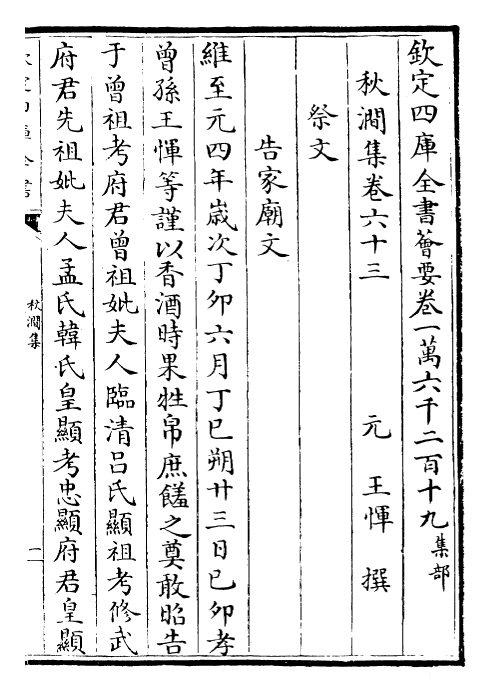 欽定四庫全書薈要卷一萬六千二百十九集部
秋澗集卷六十三　元　王惲　撰
祭文
告家廟文
維至元四年歲次丁卯六月丁巳朔廿三日己卯孝
曾孫王惲等謹以香酒時果牲帛庶饈之奠敢昭告
于曾祖考府君曾祖妣夫人臨清呂氏顯祖考修武
府君先祖妣夫人孟氏韓氏皇顯考忠顯府君皇顯
秋澗集
二